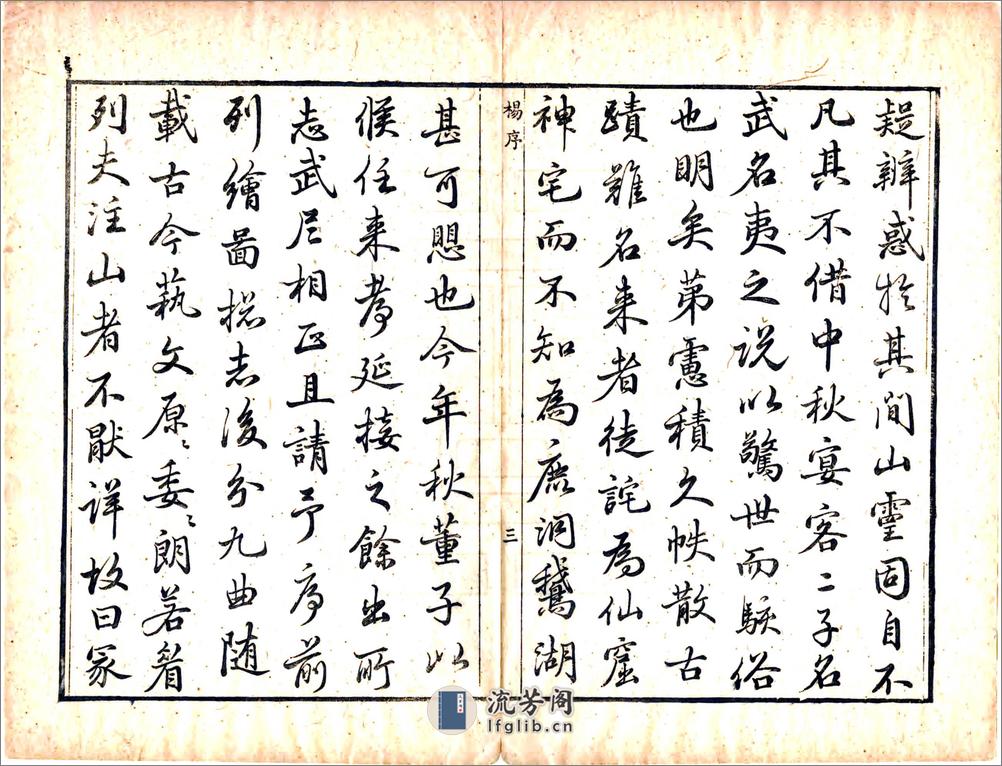 疑辨惑於其間山靈固自不
凡其不借中秋宴客二子名
武名夷之説以驚世而駭俗
也明矣苐慮積久帙散古
蹟難名来者徒詫為仙窟
神宅而不知為鹿洞鵝湖
楊序
三
甚可思也今年秋董子以
候任来考延接之餘出所
志武尼相正且請予序前
列繪啚㧾志後分九曲随
載古今執文原〻委〻朗若眉
列夫注山者不猒详故曰冢
流芳阁
lfglib.cn